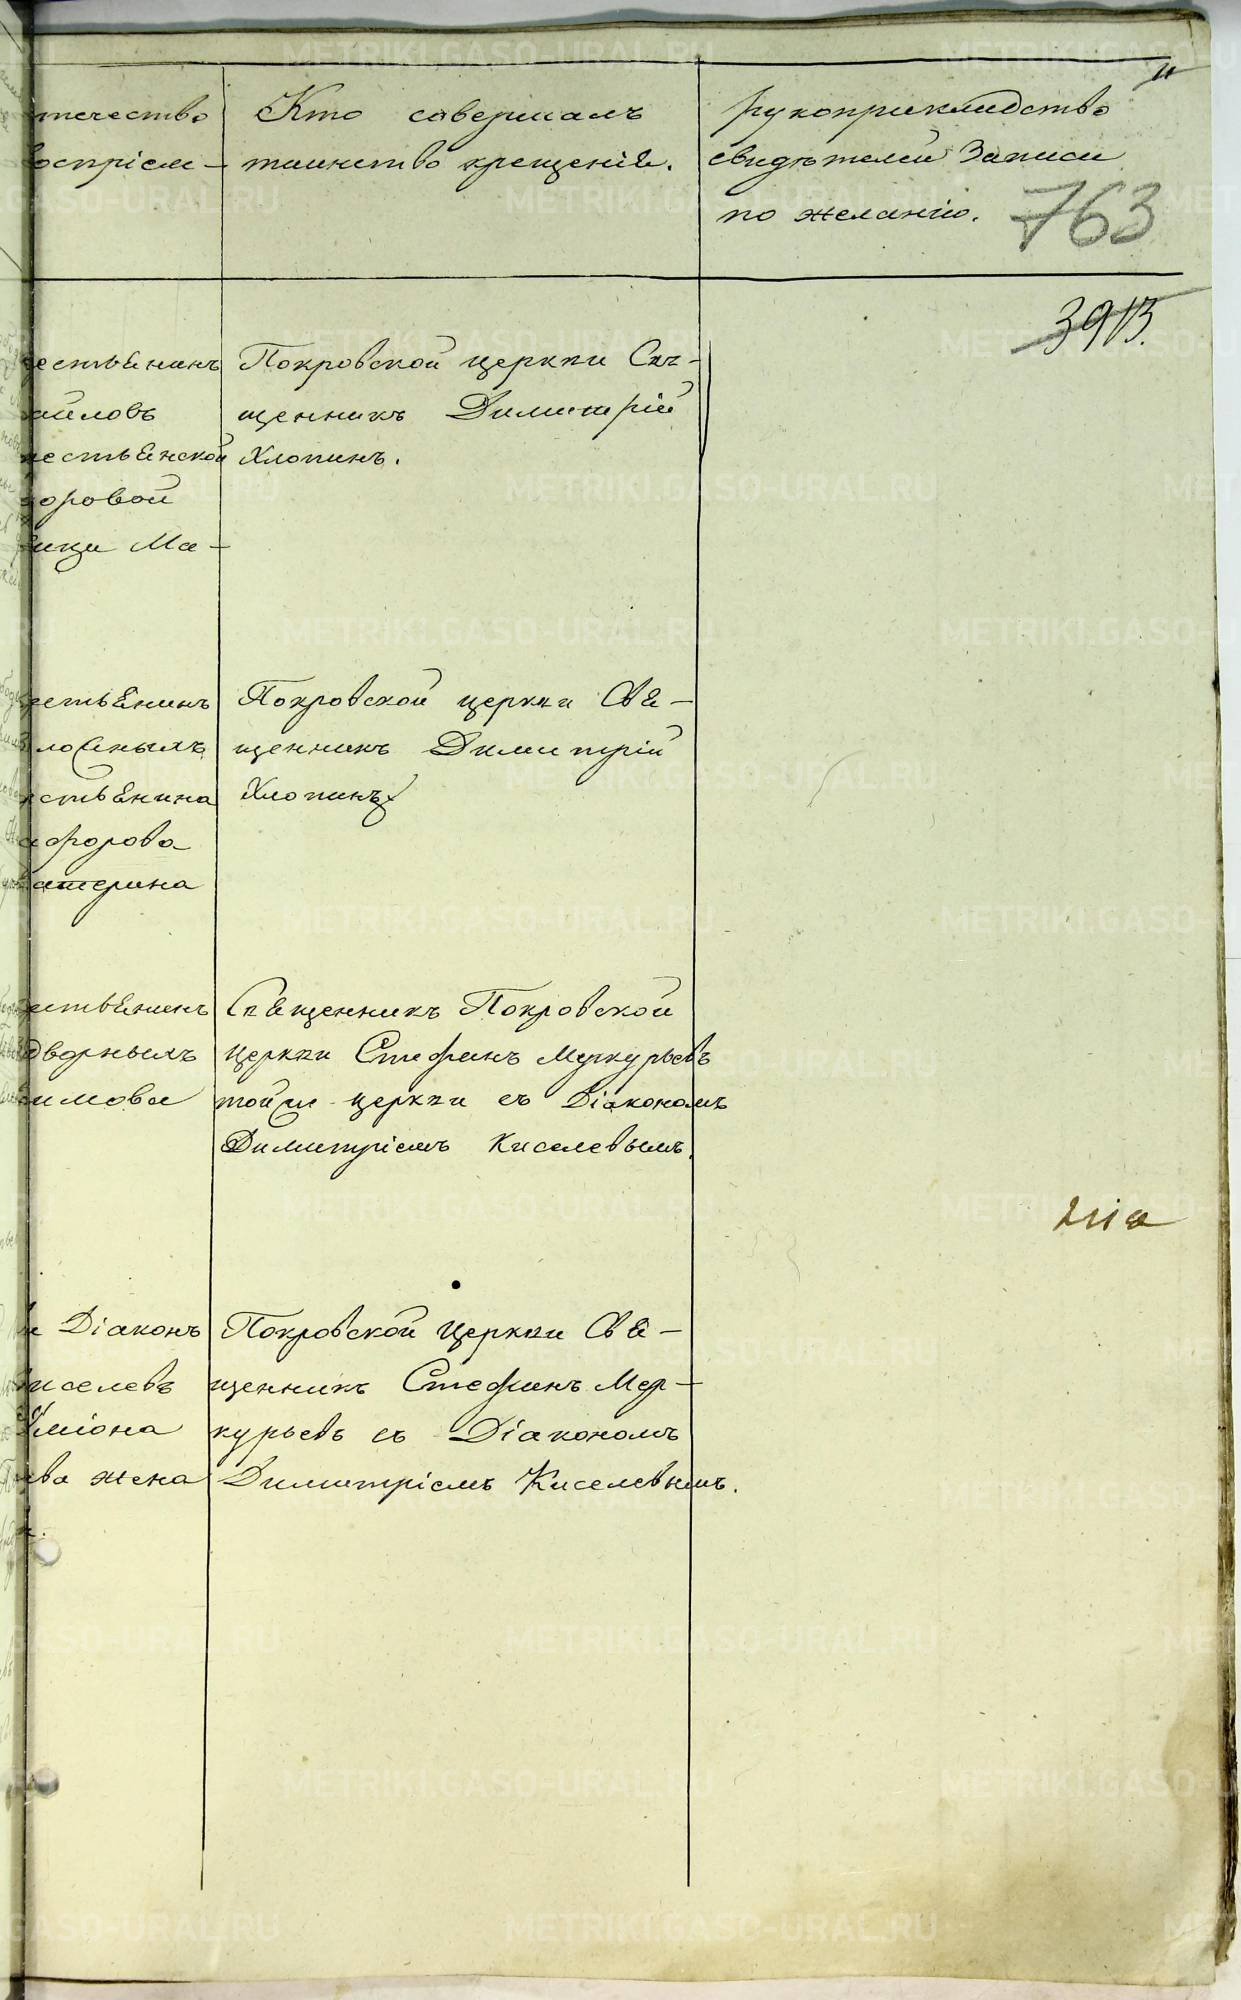 11
отечество
воспріем-
Кто совершалъ
таинство крещенія.
рукоприкладство
свидѣтелей Записи
по желанію.
763
3913.
рестьЕнинъ
аиловъ
рестьЕнской
доровой
вицы Ма-
Покровской церкви Свѣ-
щенникъ Димитрій
Хлопинъ.
рестьЕнинъ
ложныхъ
рестьЕнина
форова
катерина
Покровской церкви СвЕ-
щенникъ Димитрій
Хлопинъ
рестьЕнинъ
дворныхъ
имова
СвЕщенникъ Покровской
церкви Стефанъ Меркурьевъ
тойже церкви съ Діакономъ
Димитріемъ Киселевымъ.
и Діаконъ
Киселевъ
Симіона
ева жена
Покровской Церкви СвЕ-
щенникъ Стефанъ Мер-
курьевъ съ Діакономъ
Димитріемъ Киселевымъ.
METRIKI.GASO-URAL.RU